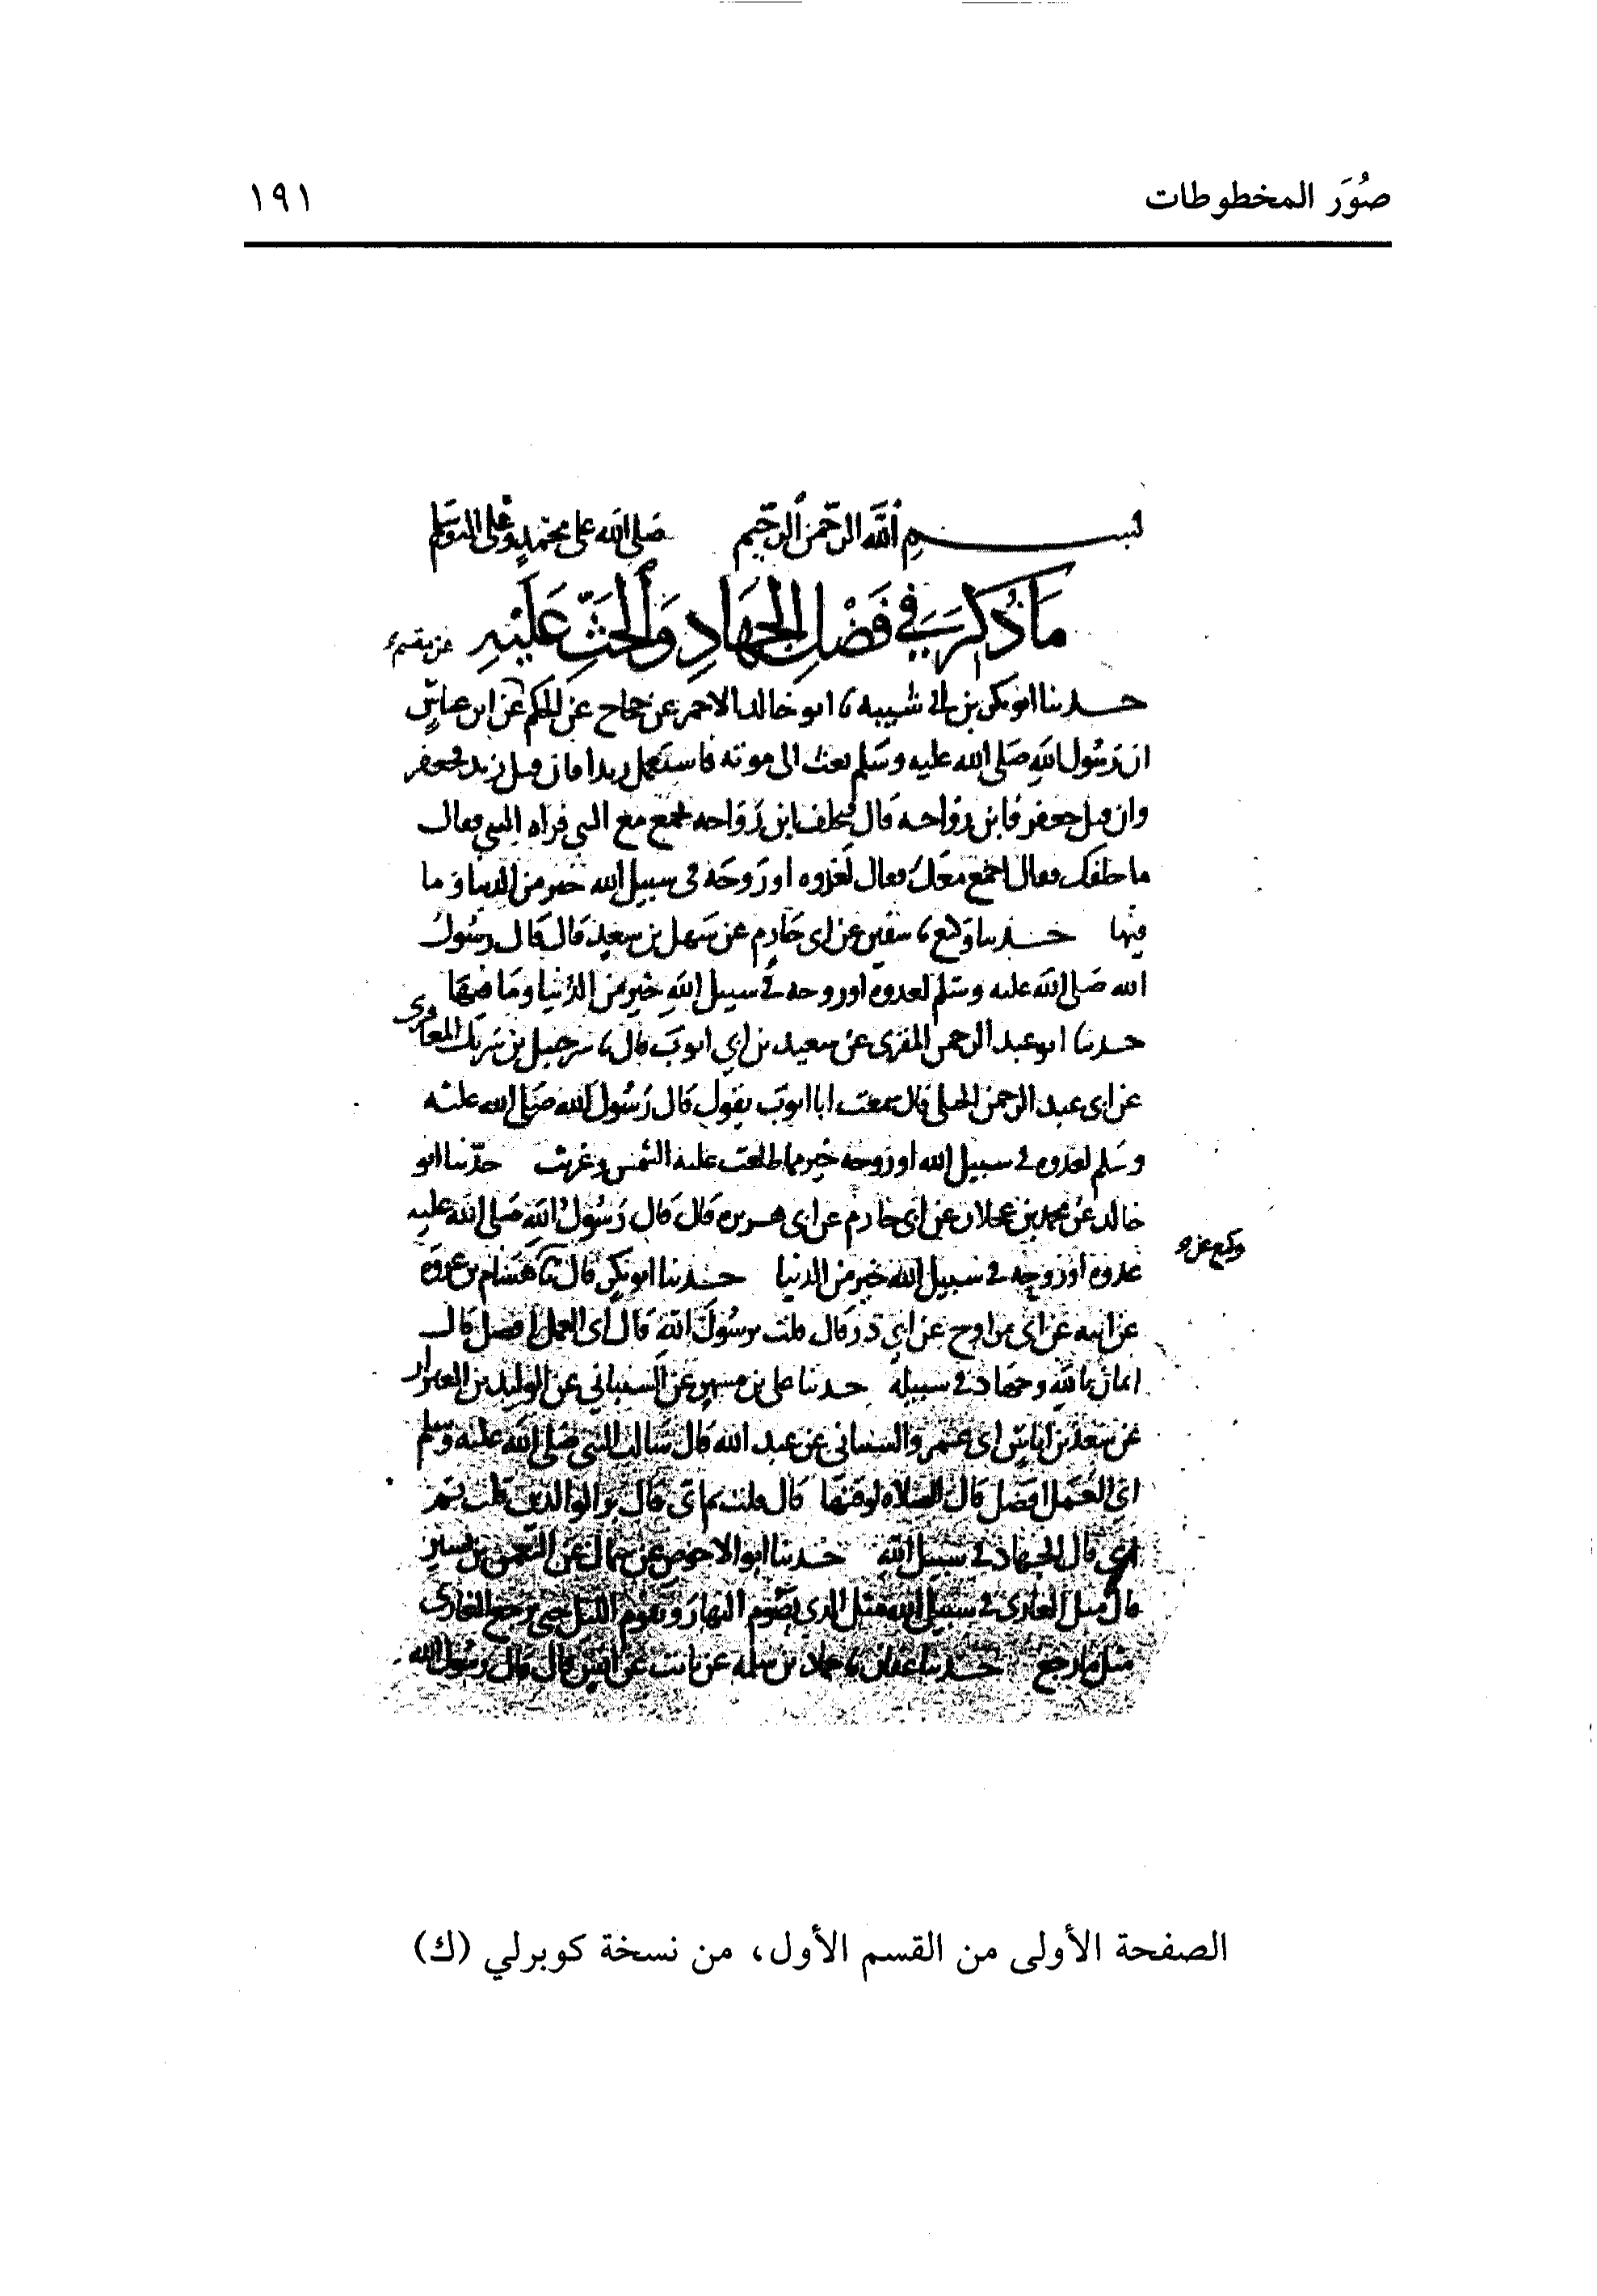 صُوَر المخطوطات
١٩١
بسم الله الرحمن الرحيم صلى الله على محمد وعلى اله وسلم
مَا ذُكِرَ في فَضْلِ الجِهَادِ وَالحَثِّ عَلَيْهِ
عن مقسم
حدثنا ابو بكر بن ابي شيبه ثنا ابو خالد الاحمر عن حجاج عن الحكم عن ابن عباس
ان رسول الله صلى الله عليه وسلم بعث الى موته فاستعمل زيدا فان قتل زيد فجعفر
وان قتل جعفر فابن رواحه قال فتخلف ابن رواحه فجمع مع النبي فراه النبي فقال
ما خلفك فقال اجمع معك فقال لغدوه او روحه في سبيل الله خير من الدنيا وما
فيها حدثنا وكيع ثنا سفين عن ابي حازم عن سهل بن سعيد قال قال رسول
الله صلى الله عليه وسلم لغدوه او روحه في سبيل الله خير من الدنيا وما فيها
حدثنا ابو عبد الرحمن المقري عن سعيد بن ابي ايوب قال ثنا شرحبيل بن شريك المعافري
عن ابي عبد الرحمن الحبلي قال سمعت ابا ايوب يقول قال رسول الله صلى الله عليه
وسلم لغدوه في سبيل الله او روحه خير مما طلعت عليه الشمس وغربت حدثنا ابو
خالد عن محمد بن عجلان عن ابي حازم عن ابي هريره قال قال رسول الله صلى الله عليه
غدوه او روحه في سبيل الله خير من الدنيا حدثنا ابو بكر قال ثنا هشام بن عروه
وكيع عن
عن ابيه عن ابي مراوح عن ابي ذر قال قلت يرسول الله قال اي العمل افضل قال
ايمان بالله وجهاد في سبيله حدثنا علي بن مسهر عن الشيباني عن الوليد بن العيزار
عن سعد بن اياس ابي عمرو الشيباني عن عبد الله قال سالت النبي صلى الله عليه وسلم
اي العمل افضل قال الصلاه لوقتها قال قلت ثم اي قال بر الوالدين قلت ثم
اي قال الجهاد في سبيل الله حدثنا ابو الاحوص عن سماك عن النعمن بن بشير
قال مثل الغازي في سبيل الله مثل الذي يصوم النهار ويقوم الليل حتى يرجع الغازي
متى ما رجع حدثنا عفان ثنا حماد بن سلمه عن ثابت عن انس قال قال رسول الله
الصفحة الأولى من القسم الأول، من نسخة كوبرلي (ك)